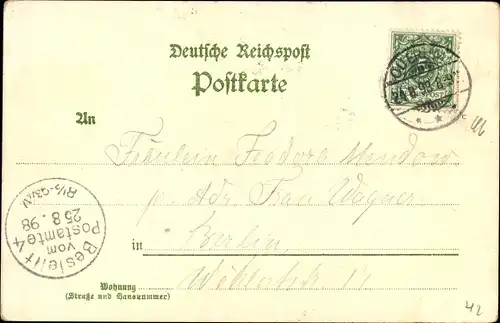 Deutsche Reichspost
Postkarte
An
Fräulein Feodora
p. Adr. Frau Wagner
in Berlin,
Wohnung
(Straße und Hausnummer)
24.8.98
5
Bestellt
vom
Postamte 4
25 8. 98
42